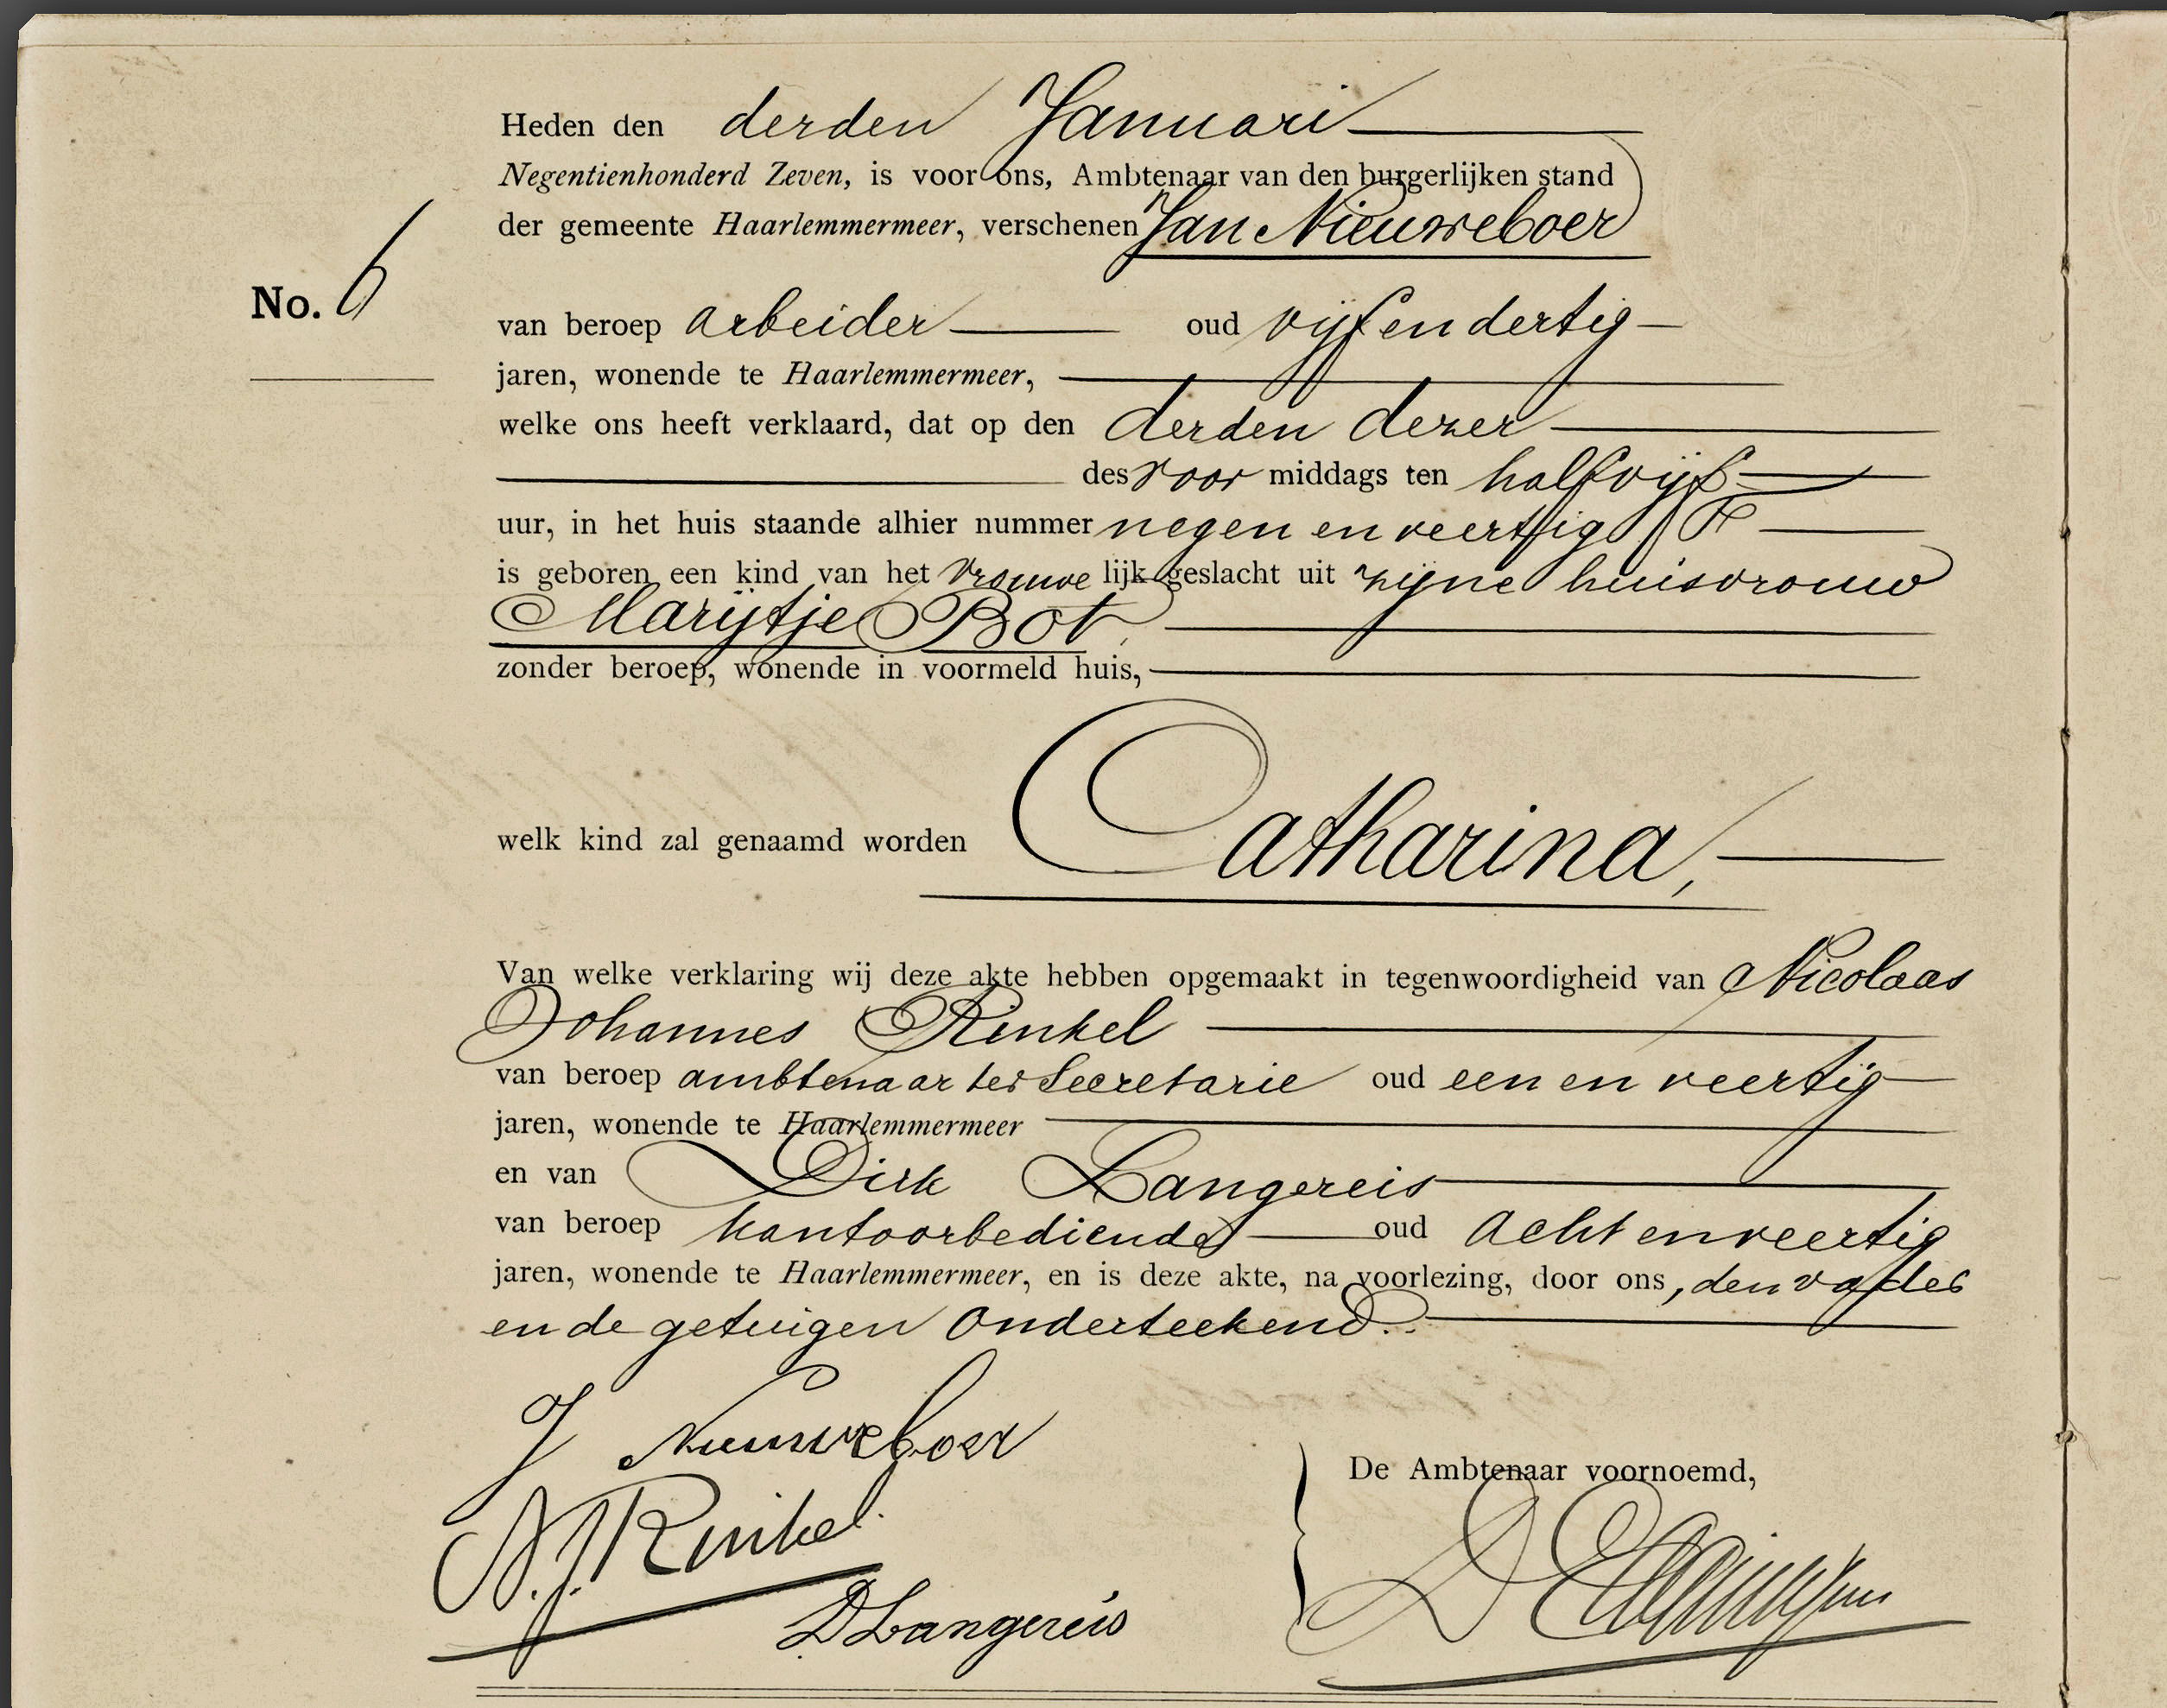 Heden den derden Januari
Negentienhonderd Zeven, is voor ons, Ambtenaar van den burgerlijken stand
der gemeente Haarlemmermeer, verschenen Jan Nieuweboer
No. 6
van beroep arbeider oud vijf en dertig
jaren, wonende te Haarlemmermeer,
welke ons heeft verklaard, dat op den derden dezer
des voor middags ten half vijf
uur, in het huis staande alhier nummer negen en veertig
is geboren een kind van het vrouwe lijk geslacht uit zijne huisvrouw
Marijtje Bot,
zonder beroep, wonende in voormeld huis,
welk kind zal genaamd worden Catharina,
Van welke verklaring wij deze akte hebben opgemaakt in tegenwoordigheid van Nicolaas
Johannes Rinkel
van beroep ambtenaar ter Secretarie oud een en veertig
jaren, wonende te Haarlemmermeer
en van Dirk Langereis
van beroep kantoorbediende oud acht en veertig
jaren, wonende te Haarlemmermeer, en is deze akte, na voorlezing, door ons, den vader
en de getuigen onderteekend.
J Nieuweboer
De Ambtenaar voornoemd,
N. J. Rinkel
D Langereis